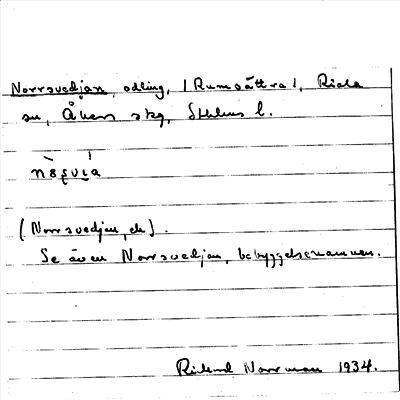 Norrsvedjan, odling, (Rumsättra), Riala
sn, Åkers skg, Sthlms l.
(Norrsvedjan, ek).
Se även Norrsvedjan, bebyggelsenamnen.
Rikard Norrman 1934.